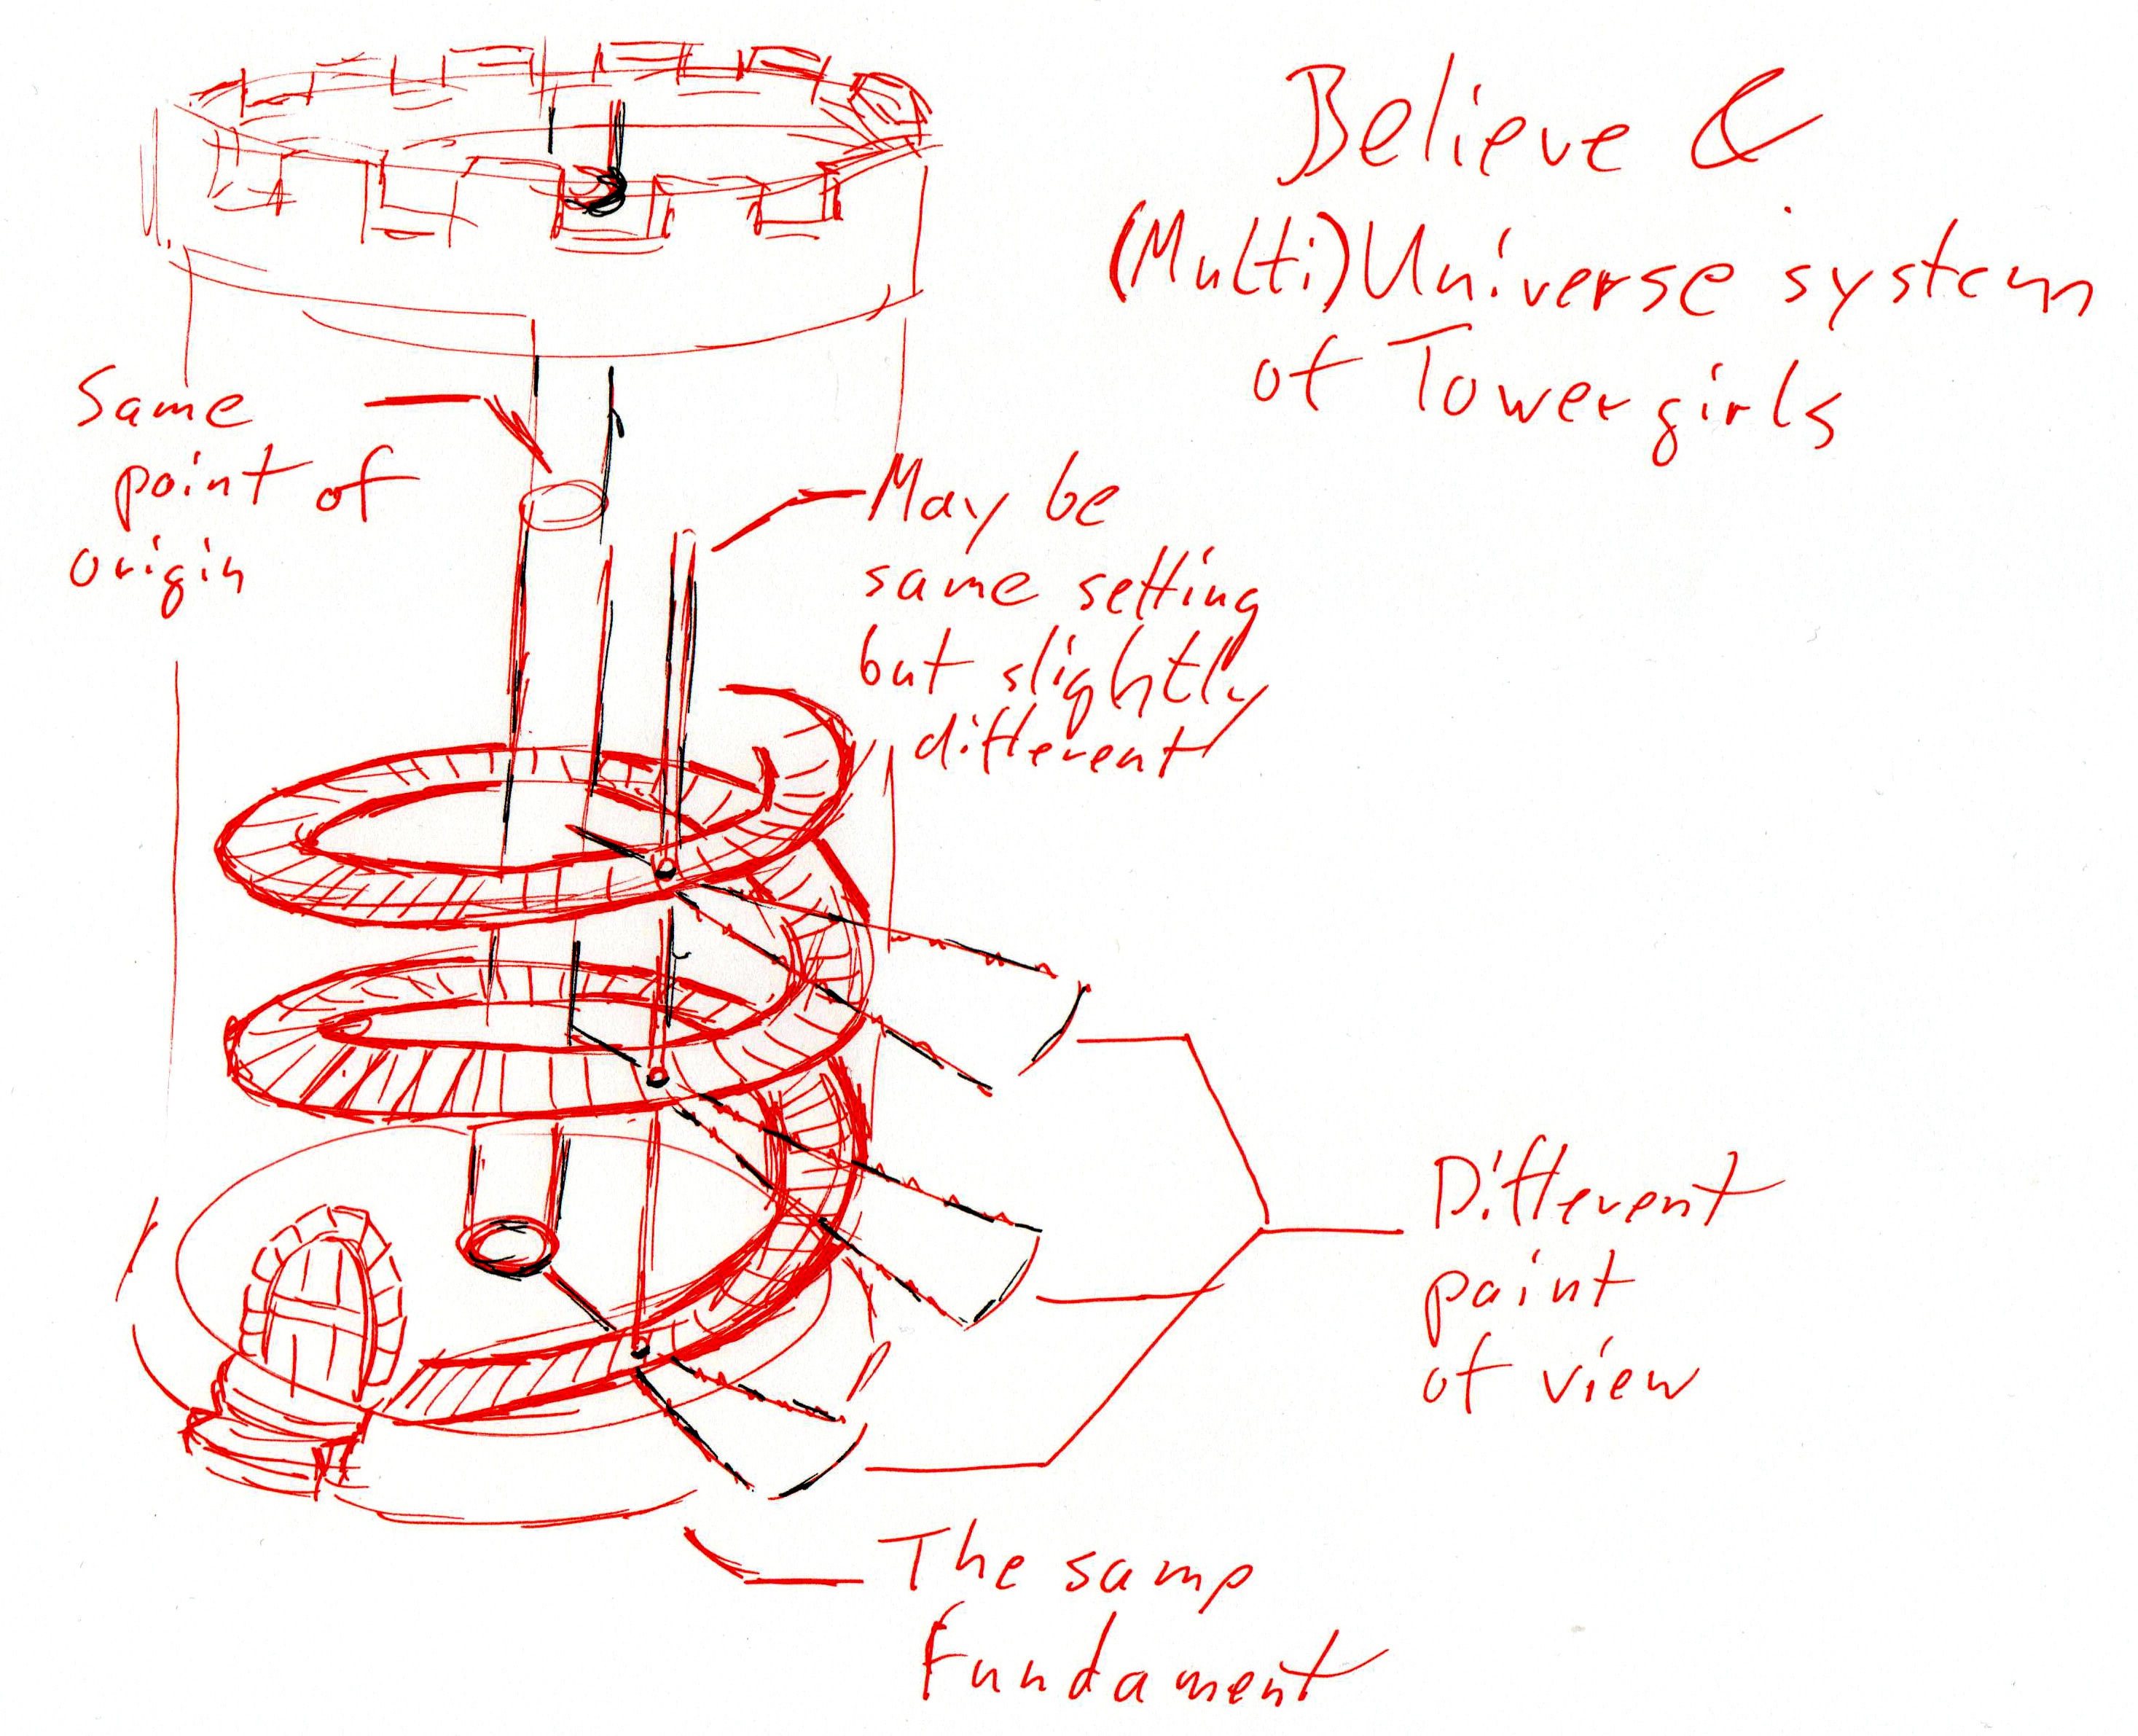 Believe &
(Multi)Universe system
of Towergirls
Same
point of
origin
May be
same setting
but slightly
different
Different
point
of view
The samp
Fundament